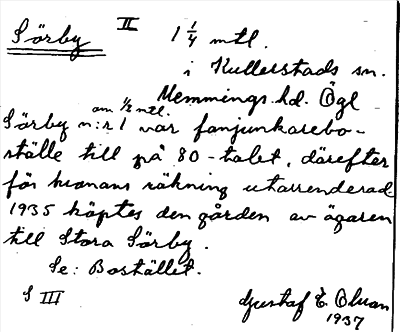 Sörby II 1 1/4 mtl.
i Kullerstads sn.
Memmings hd. Ögl
om 1/2 mtl.
Sörby n:r 1 var fanjunkarebo-
ställe till på 80-talet, därefter
för kronans räkning utarrenderad
1935 köptes den gården av ägaren
till Stora Sörby.
Se: Bostället.
S III
Gustaf E. Olson
1937